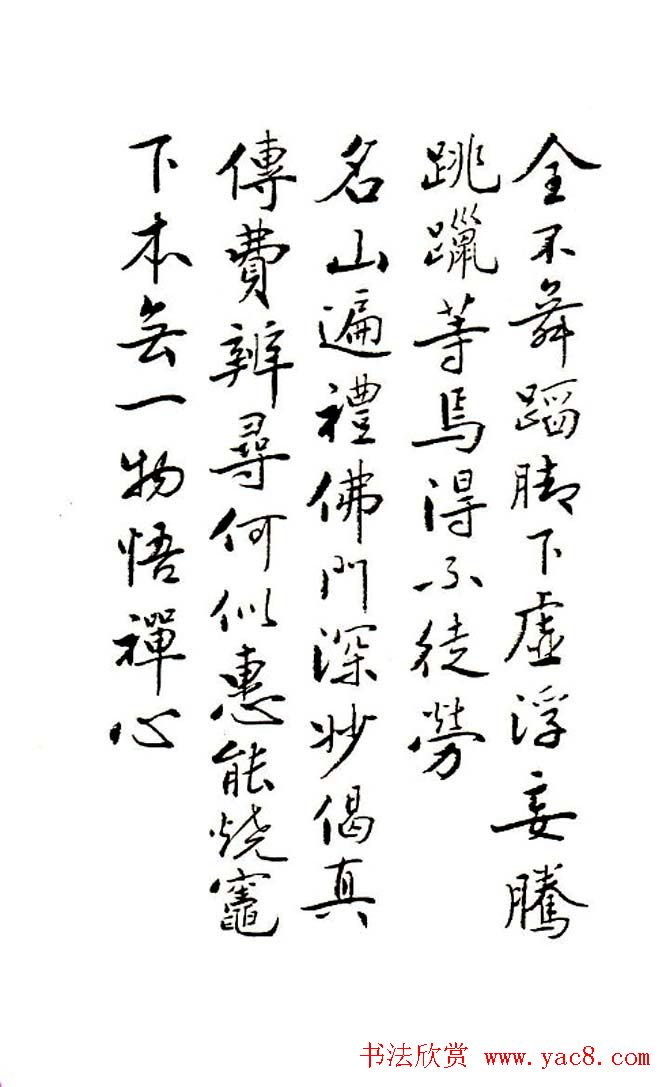 全不舞蹈脚下虛浮妄騰
跳躐等焉得不徒勞
名山遍禮佛門深妙偈真
傳費辨尋何似惠能燒竈
下本無一物悟禪心
书法欣赏 www.yac8.com